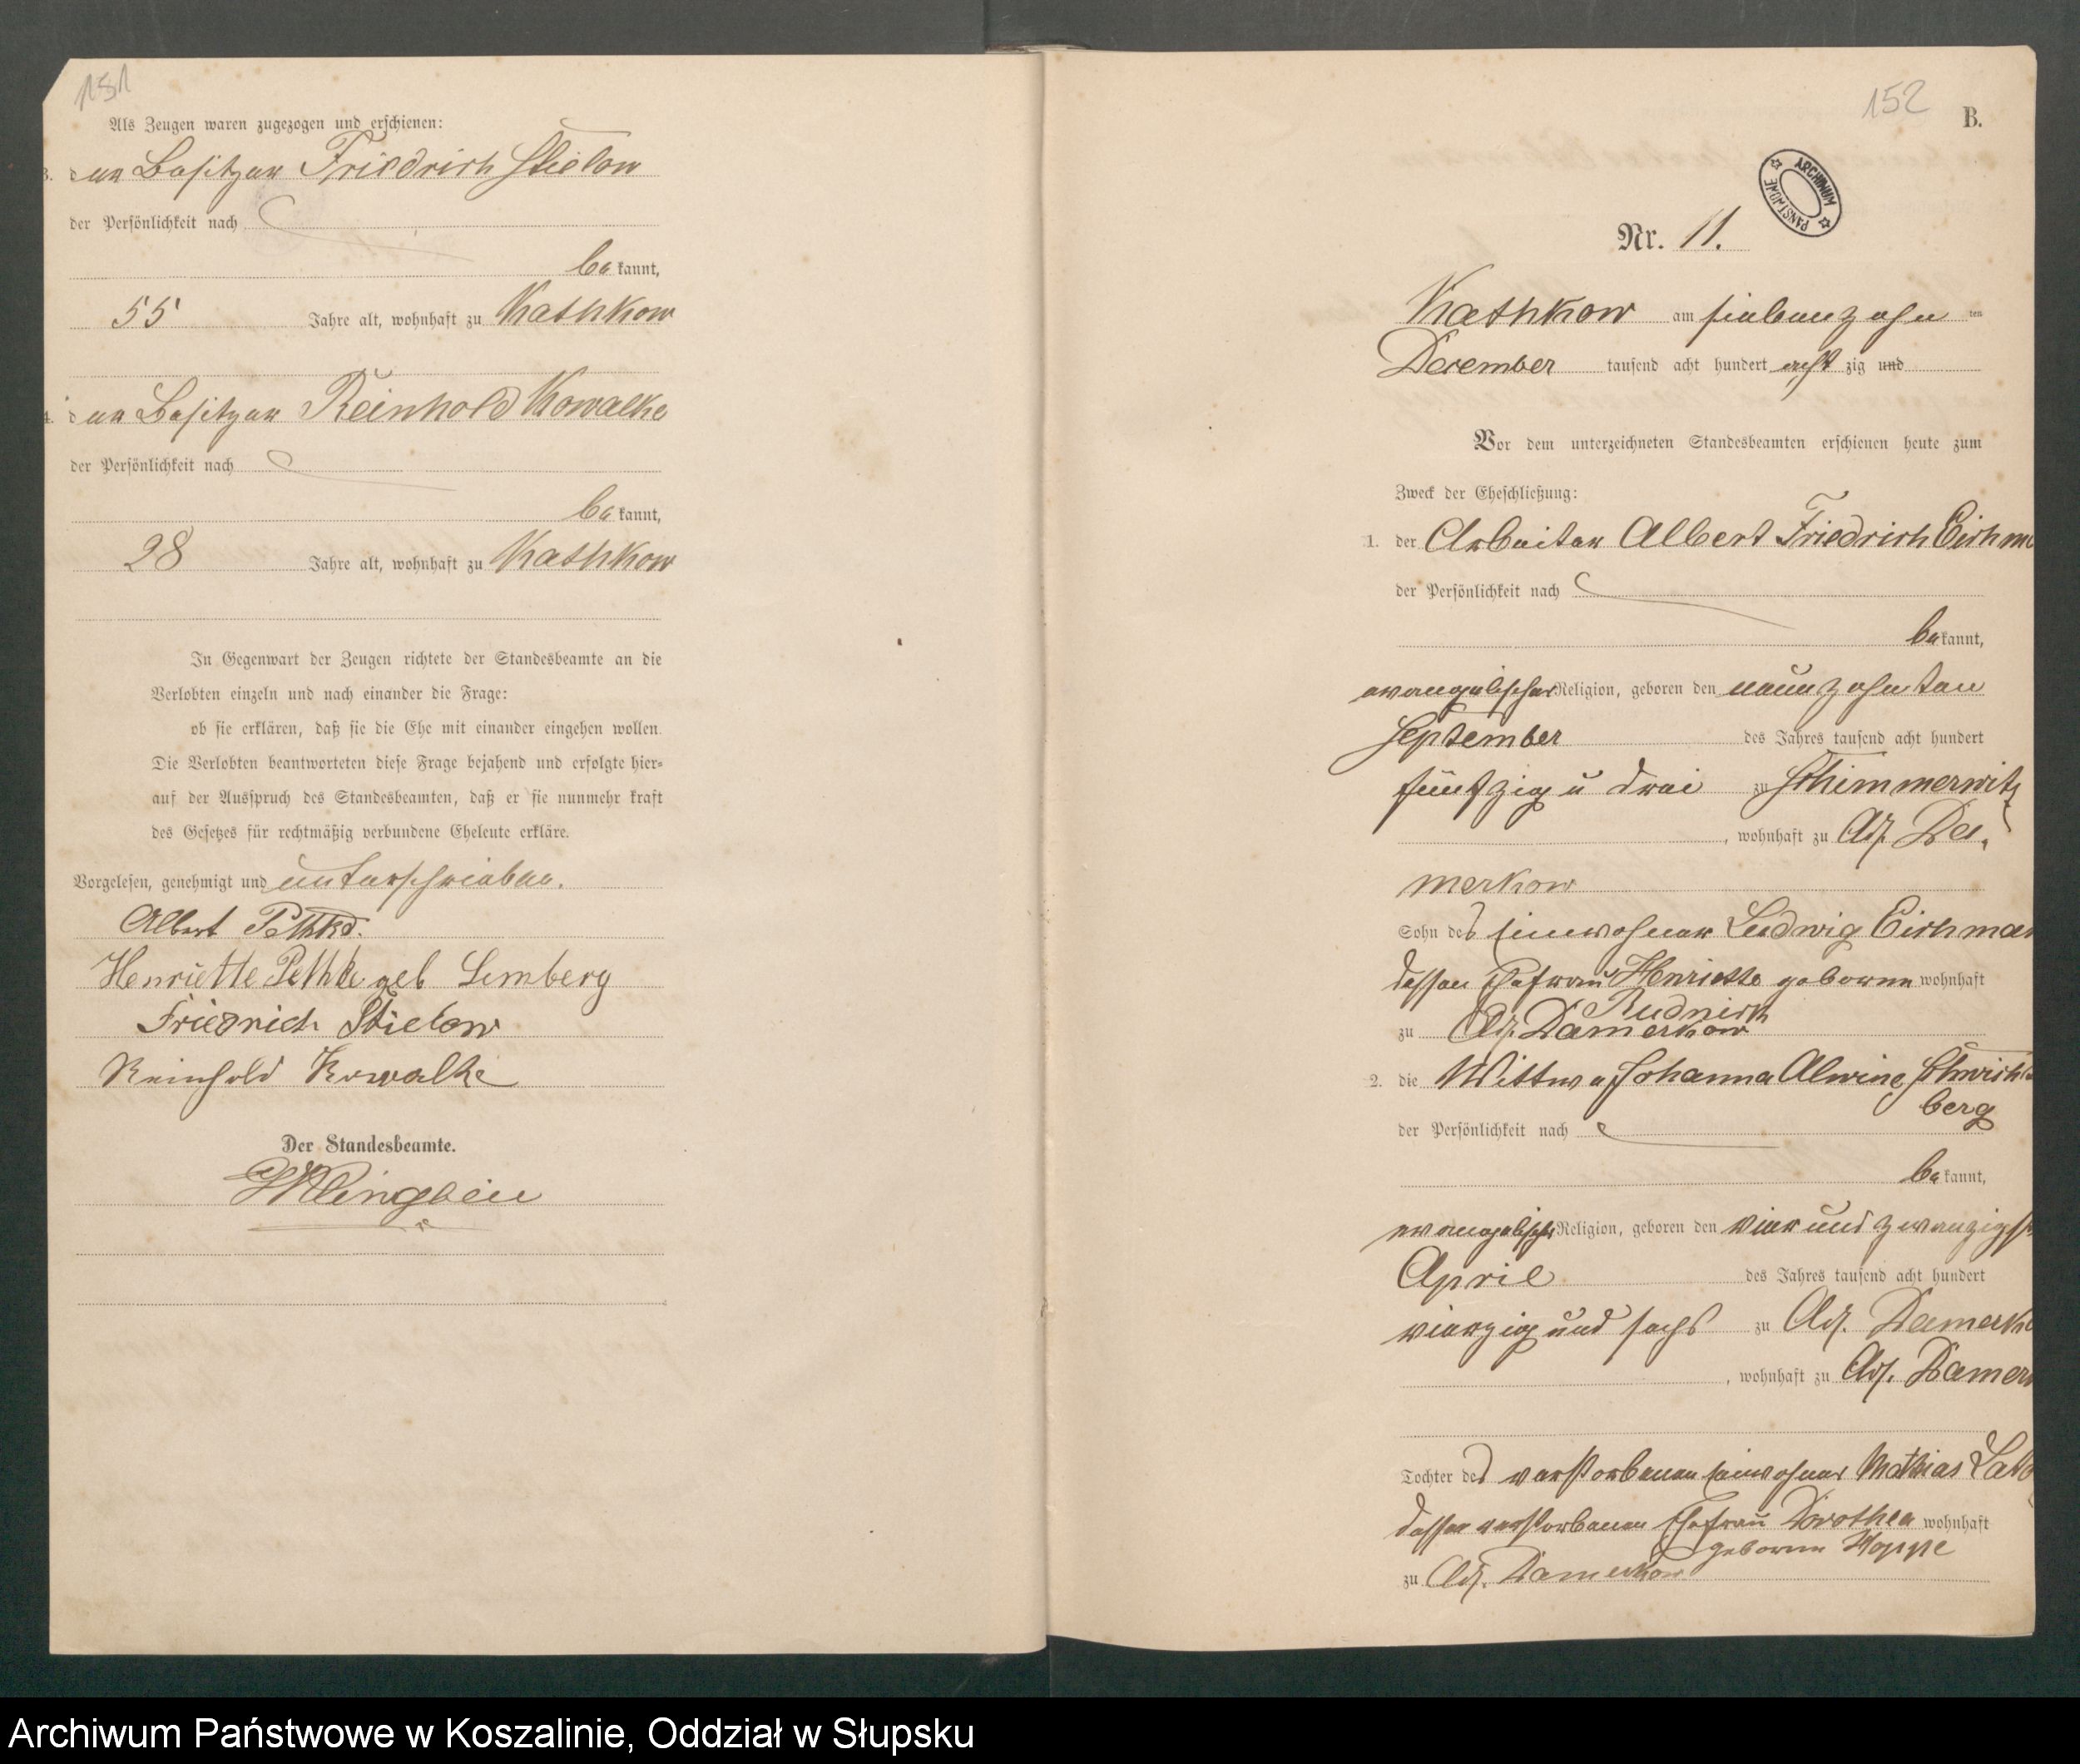 151
Als Zeugen waren zugezogen und erschienen:
3. der Besitzer Friedrich Stielow
der Persönlichkeit nach
be kannt,
55 Jahre alt, wohnhaft zu Kathkow
4. der Besitzer Reinhold Kowalke
der Persönlichkeit nach
be kannt,
28 Jahre alt, wohnhaft zu Kathkow
In Gegenwart der Zeugen richtete der Standesbeamte an die
Verlobten einzeln und nach einander die Frage:
ob sie erklären, daß sie die Ehe mit einander eingehen wollen.
Die Verlobten beantworteten diese Frage bejahend und erfolgte hier-
auf der Ausspruch des Standesbeamten, daß er sie nunmehr kraft
des Gesetzes für rechtmäßig verbundene Eheleute erkläre.
Vorgelesen, genehmigt und unterschrieben.
Albert Pethke.
Henriette Pethke geb Lemberg
Friedrich Stielow
Reinhold Kowalke
Der Standesbeamte.
Klingbeil
152
B.
ARCHIWUM PAŃSTWOWE
Nr. 11.
Kathkow am siebenzehn ten
December tausend acht hundert acht zig und
Vor dem unterzeichneten Standesbeamten erschienen heute zum
Zweck der Eheschließung:
1. der Arbeiter Albert Friedrich Eichma
der Persönlichkeit nach
be kannt,
evangelischer Religion, geboren den neunzehnten
September des Jahres tausend acht hundert
fünfzig u drei zu Schimmerwitz
, wohnhaft zu Adl. Da-
merkow
Sohn des Einwohner Ludwig Eichman
dessen Ehefrau Henriette geborene wohnhaft
Rudnick
zu Adl. Damerkow
2. die Wittwe Johanna Alwine Schwichten
berg
der Persönlichkeit nach
be kannt,
evangelischer Religion, geboren den vier und zwanzigst
April des Jahres tausend acht hundert
vierzig und sechs zu Adl. Damerko
, wohnhaft zu Adl. Damerk
Tochter des verstorbenen Einwohner Mathias
dessen verstorbenen Ehefrau Dorothea wohnhaft
geborene Hoppe
zu Adl. Damerkow
Archiwum Państwowe w Koszalinie, Oddział w Słupsku